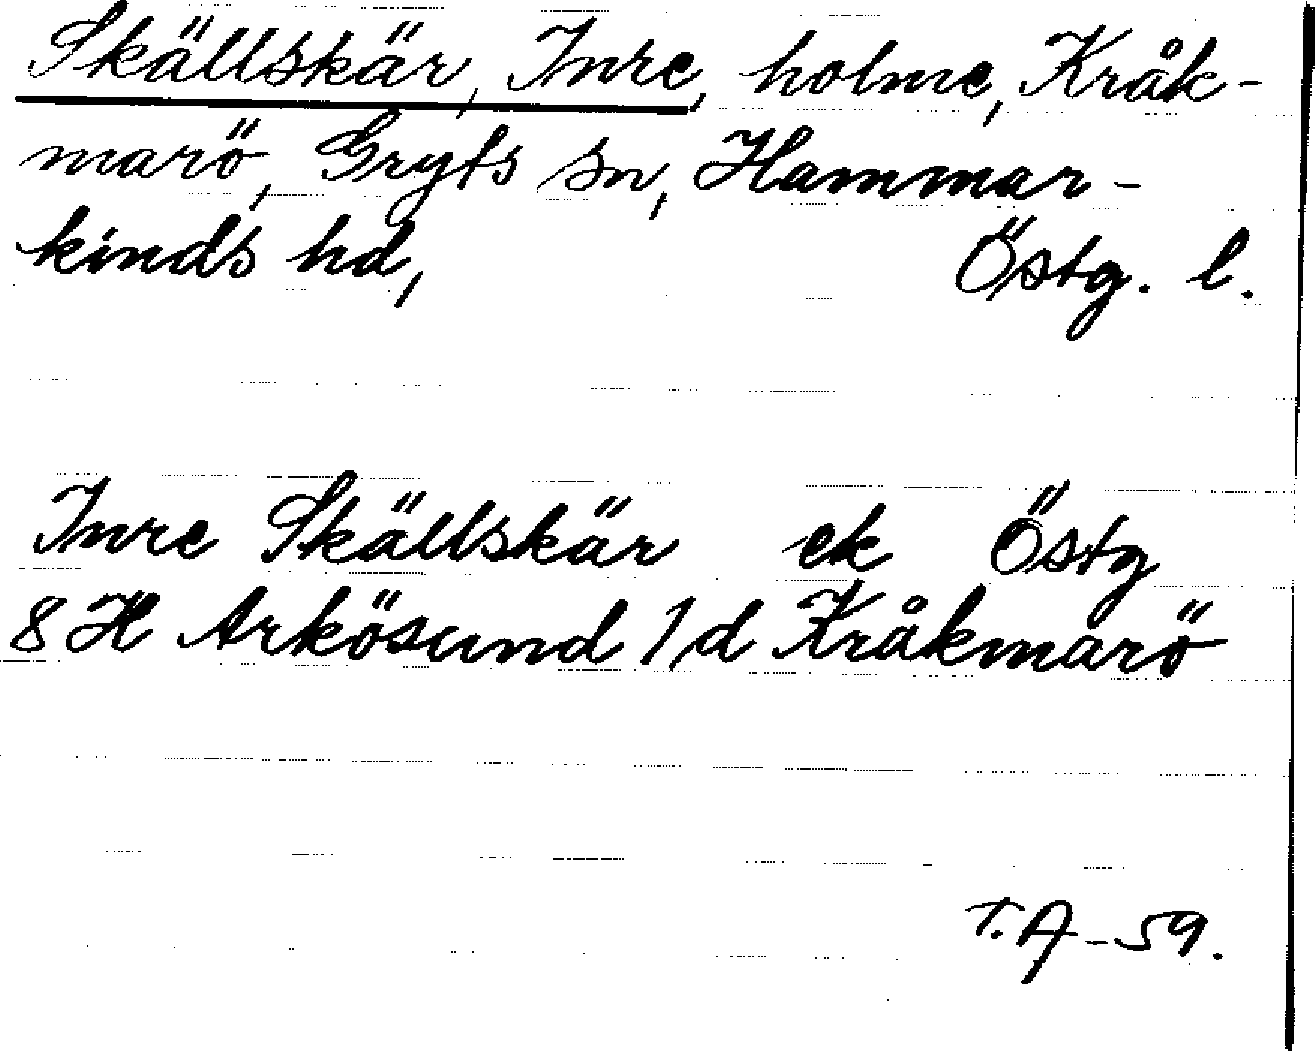 Skällskär, Inre, holme, Kråk-
marö, Gryts sn, Hammar-
kinds hd, Östg. l.
Inre Skällskär ek Östg
8 H Arkösund 1/d Kråkmarö
T.A-59.